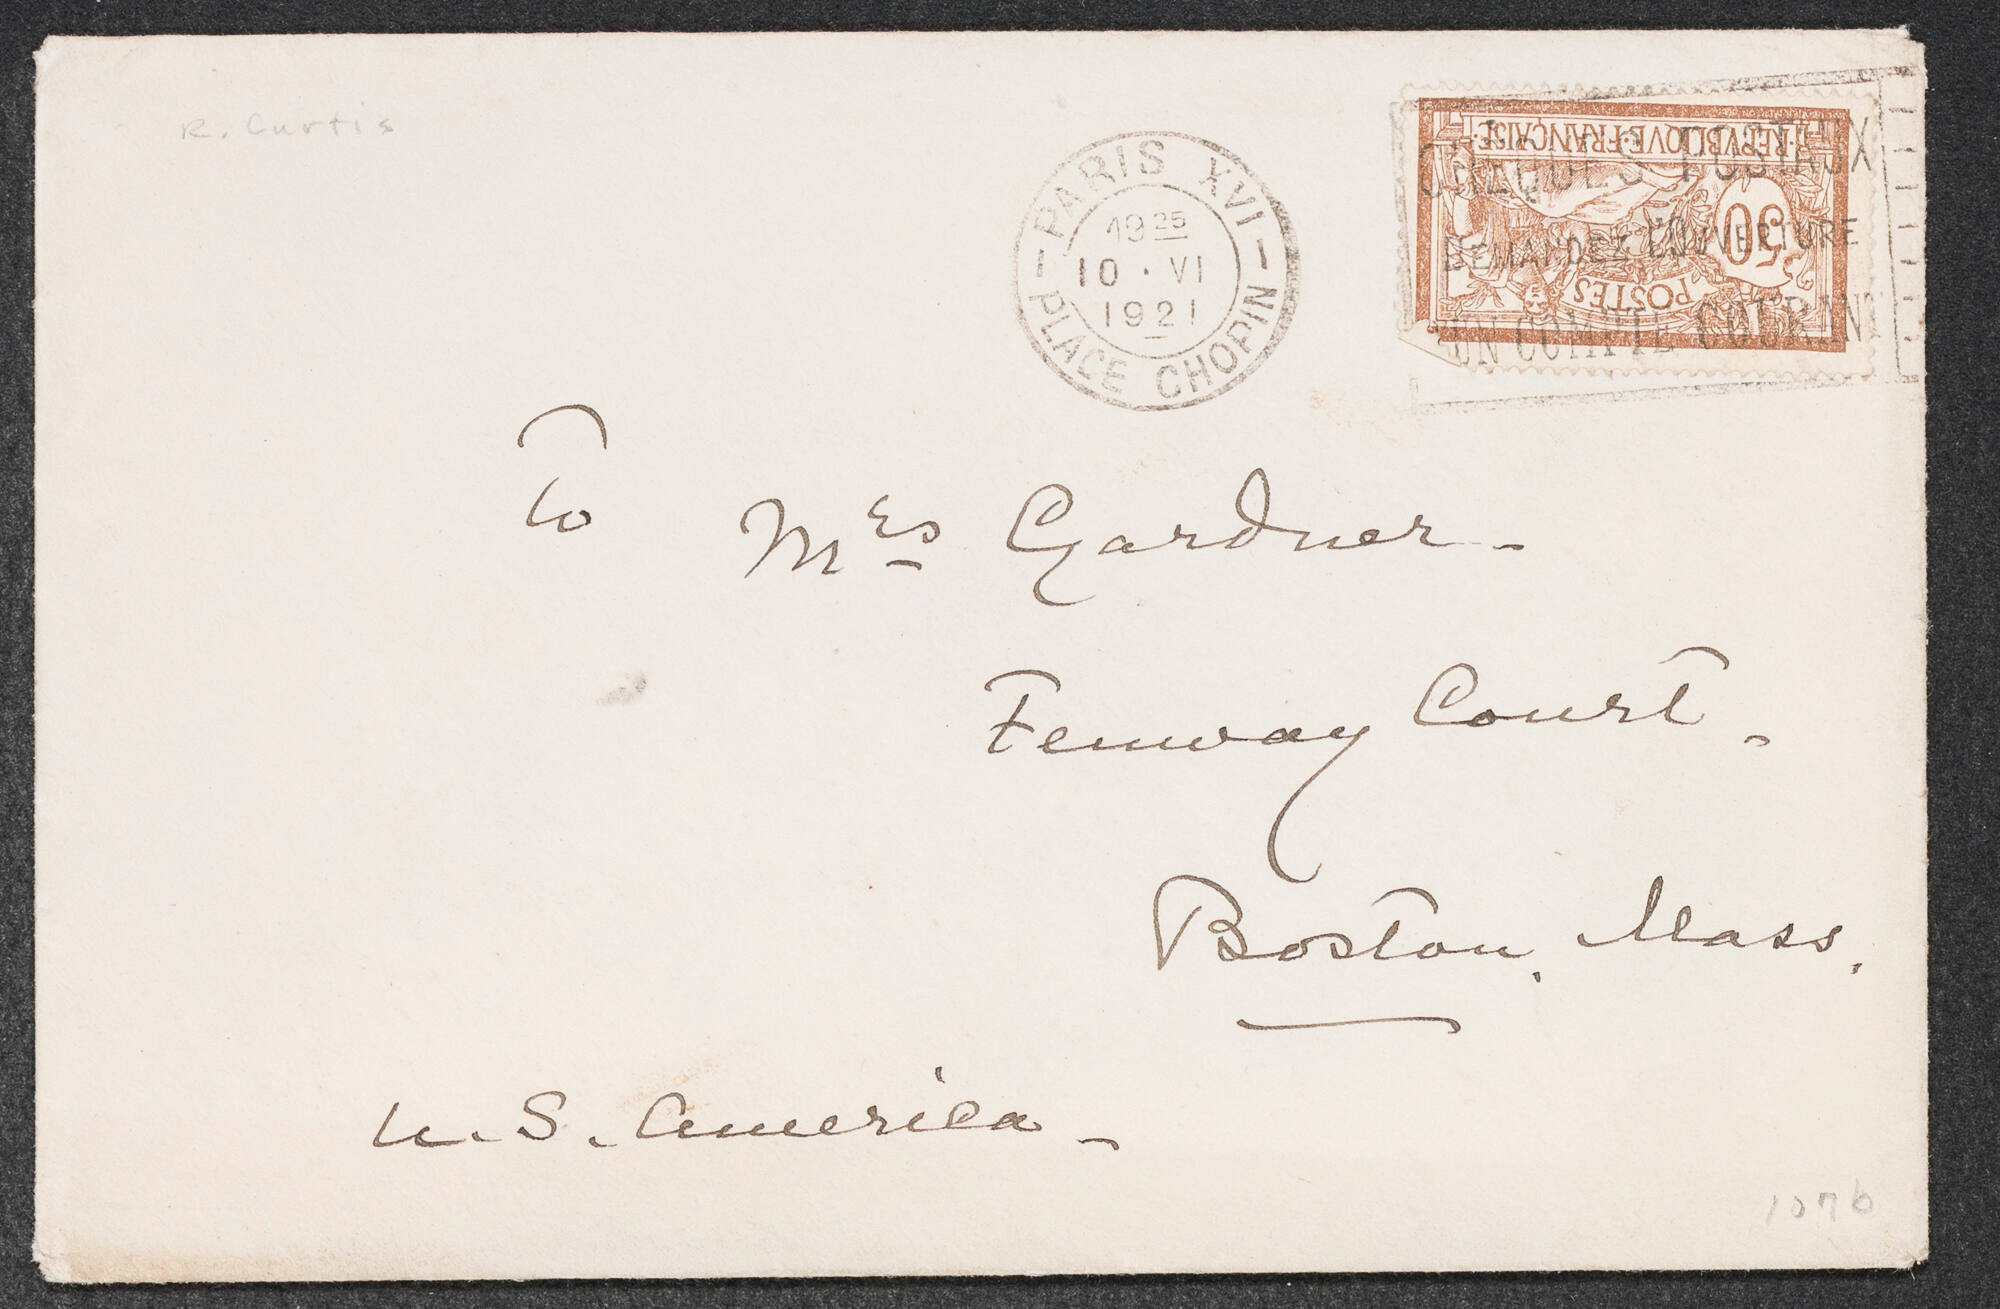 R. Curtis
PARIS XVI
19 25
10 · VI
1921
PLACE CHOPIN
REPVBLIQVE·FRANÇAISE
50
POSTES
CHÈQUES POSTAUX
DEMANDEZ L'OUVERTURE
D'UN COMPTE COURANT
To
Mrs Gardner -
Fenway Court.
Boston, Mass.
U.S. America -
107b